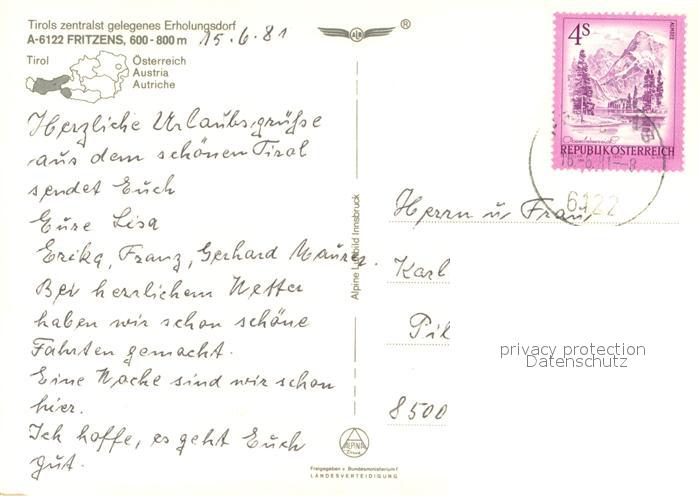 Tirols zentralst gelegenes Erholungsdorf
A-6122 FRITZENS, 600-800 m
15.6.81
Tirol
Österreich
Austria
Autriche
Herzliche Urlaubsgrüße
aus dem schönen Tirol
sendet Euch
Eure Lisa
Erika, Franz, Gerhard Maurer.
Bei herrlichem Wetter
haben wir schon schöne
Fahrten gemacht.
Eine Woche sind wir schon
hier.
Ich hoffe, es geht Euch
gut.
Alpine Luftbild Innsbruck
ALPINE
Freigegeben v. Bundesministerium f.
LANDESVERTEIDIGUNG
®
4S
ALMSEE
REPUBLIK ÖSTERREICH
6122
Herrn u. Frau
Karl
Pil
8500
privacy protection
Datenschutz